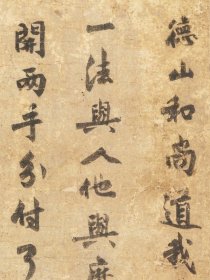 德山和尚道我
一法與人他與麼
開兩手分付了